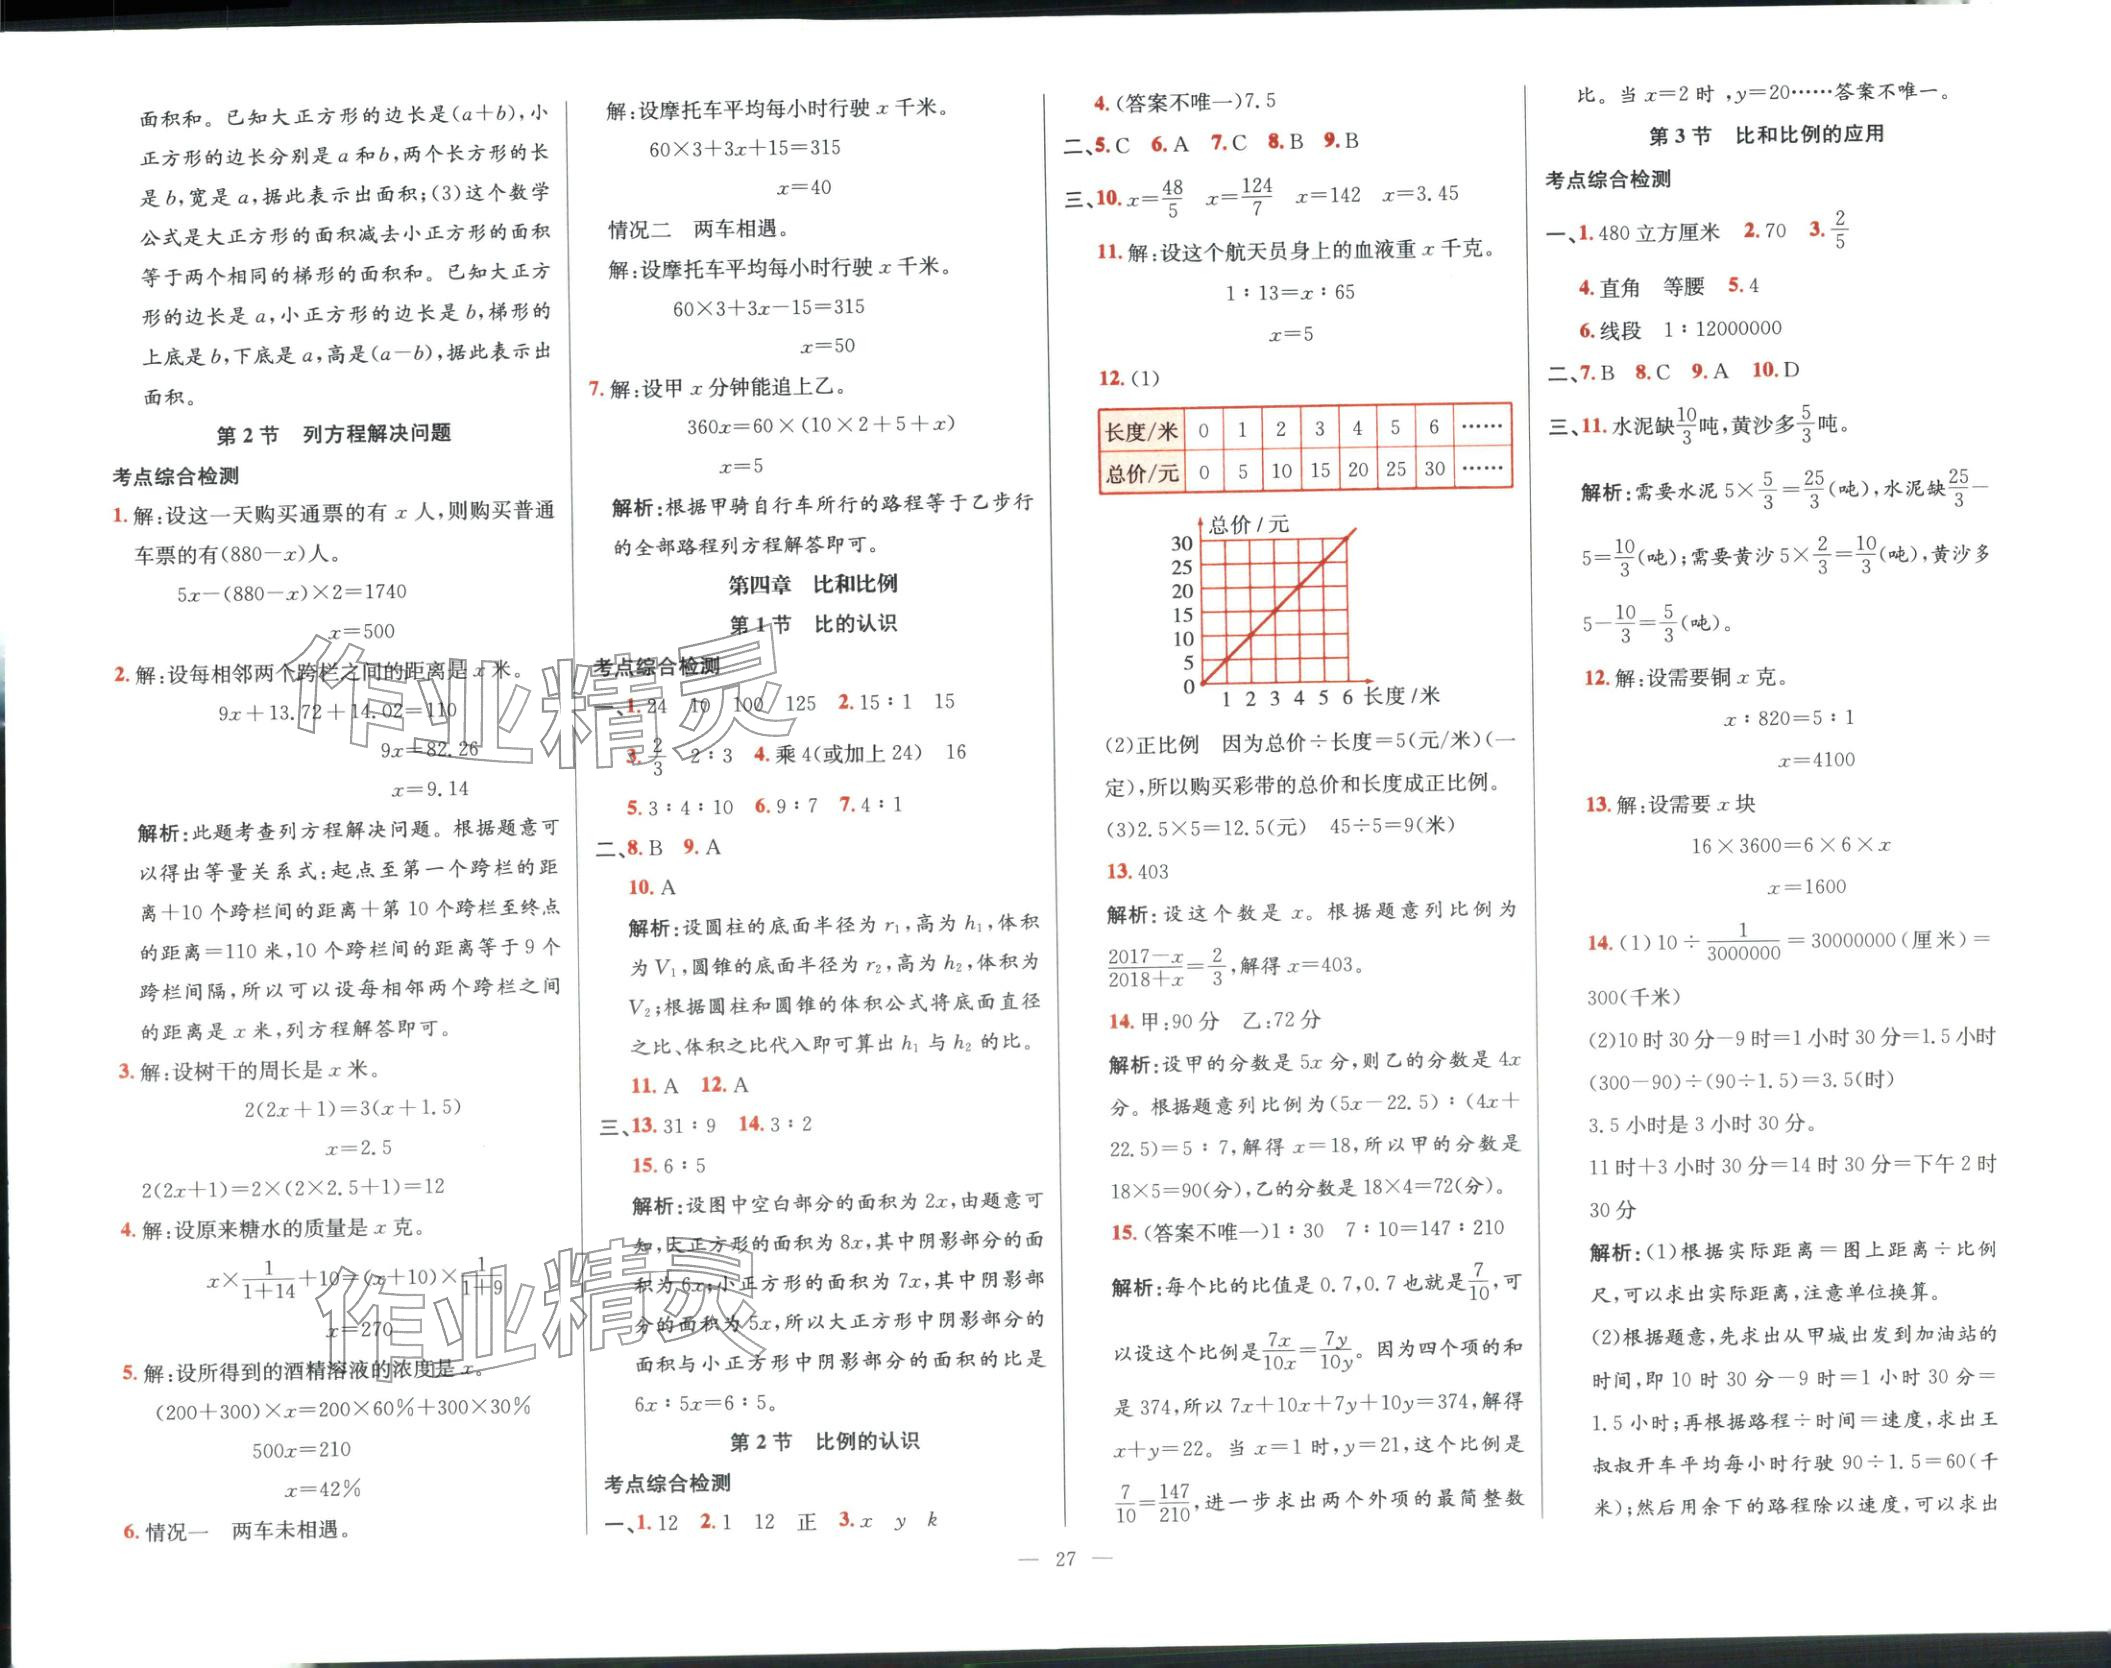 面积和。已知大正方形的边长是(a+b),小
正方形的边长分别是a和b,两个长方形的长
是b,宽是a,据此表示出面积;(3)这个数学
公式是大正方形的面积减去小正方形的面积
等于两个相同的梯形的面积和。已知大正方
形的边长是a,小正方形的边长是b,梯形的
上底是b,下底是a,高是(a-b),据此表示出
面积。
第2节 列方程解决问题
考点综合检测
1. 解:设这一天购买通票的有x人,则购买普通
车票的有(880-x)人。
5x-(880-x)×2=1740
x=500
2. 解:设每相邻两个跨栏之间的距离是x米。
9x+13.72+14.02=110
9x=82.26
x=9.14
解析:此题考查列方程解决问题。根据题意可
以得出等量关系式:起点至第一个跨栏的距
离+10个跨栏间的距离+第10个跨栏至终点
的距离=110米,10个跨栏间的距离等于9个
跨栏间隔,所以可以设每相邻两个跨栏之间
的距离是x米,列方程解答即可。
3. 解:设树干的周长是x米。
2(2x+1)=3(x+1.5)
x=2.5
2(2x+1)=2×(2×2.5+1)=12
4. 解:设原来糖水的质量是x克。
x×1/(1+14)+10=(x+10)×1/(1+9)
x=270
5. 解:设所得到的酒精溶液的浓度是x。
(200+300)×x=200×60%+300×30%
500x=210
x=42%
6. 情况一 两车未相遇。
解:设摩托车平均每小时行驶x千米。
60×3+3x+15=315
x=40
情况二 两车相遇。
解:设摩托车平均每小时行驶x千米。
60×3+3x-15=315
x=50
7. 解:设甲x分钟能追上乙。
360x=60×(10×2+5+x)
x=5
解析:根据甲骑自行车所行的路程等于乙步行
的全部路程列方程解答即可。
第四章 比和比例
第1节 比的认识
考点综合检测
一、1. 24 10 100 125 2. 15∶1 15
3. 2/3 2∶3 4. 乘4(或加上24) 16
5. 3∶4∶10 6. 9∶7 7. 4∶1
二、8. B 9. A
10. A
解析:设圆柱的底面半径为r₁,高为h₁,体积
为V₁,圆锥的底面半径为r₂,高为h₂,体积为
V₂;根据圆柱和圆锥的体积公式将底面直径
之比、体积之比代入即可算出h₁与h₂的比。
11. A 12. A
三、13. 31∶9 14. 3∶2
15. 6∶5
解析:设图中空白部分的面积为2x,由题意可
知,大正方形的面积为8x,其中阴影部分的面
积为6x;小正方形的面积为7x,其中阴影部
分的面积为5x,所以大正方形中阴影部分的
面积与小正方形中阴影部分的面积的比是
6x∶5x=6∶5。
第2节 比例的认识
考点综合检测
一、1. 12 2. 1 12 正 3. x y k
4. (答案不唯一)7.5
二、5. C 6. A 7. C 8. B 9. B
三、10. x=48/5 x=124/7 x=142 x=3.45
11. 解:设这个航天员身上的血液重x千克。
1∶13=x∶65
x=5
12. (1)
长度/米 0 1 2 3 4 5 6 ……
总价/元 0 5 10 15 20 25 30 ……
总价/元
30
25
20
15
10
5
0
1 2 3 4 5 6 长度/米
(2)正比例 因为总价÷长度=5(元/米)(一
定),所以购买彩带的总价和长度成正比例。
(3)2.5×5=12.5(元) 45÷5=9(米)
13. 403
解析:设这个数是x。根据题意列比例为
(2017-x)/(2018+x)=2/3,解得x=403。
14. 甲:90分 乙:72分
解析:设甲的分数是5x分,则乙的分数是4x
分。根据题意列比例为(5x-22.5)∶(4x+
22.5)=5∶7,解得x=18,所以甲的分数是
18×5=90(分),乙的分数是18×4=72(分)。
15. (答案不唯一)1∶30 7∶10=147∶210
解析:每个比的比值是0.7,0.7也就是7/10,可
以设这个比例是7x/10x=7y/10y。因为四个项的和
是374,所以7x+10x+7y+10y=374,解得
x+y=22。当x=1时,y=21,这个比例是
7/10=147/210,进一步求出两个外项的最简整数
比。当x=2时,y=20……答案不唯一。
第3节 比和比例的应用
考点综合检测
一、1. 480立方厘米 2. 70 3. 2/5
4. 直角 等腰 5. 4
6. 线段 1∶12000000
二、7. B 8. C 9. A 10. D
三、11. 水泥缺10/3吨,黄沙多5/3吨。
解析:需要水泥5×5/3=25/3(吨),水泥缺25/3-
5=10/3(吨);需要黄沙5×2/3=10/3(吨),黄沙多
5-10/3=5/3(吨)。
12. 解:设需要铜x克。
x∶820=5∶1
x=4100
13. 解:设需要x块
16×3600=6×6×x
x=1600
14. (1)10÷1/3000000=30000000(厘米)=
300(千米)
(2)10时30分-9时=1小时30分=1.5小时
(300-90)÷(90÷1.5)=3.5(时)
3.5小时是3小时30分。
11时+3小时30分=14时30分=下午2时
30分
解析:(1)根据实际距离=图上距离÷比例
尺,可以求出实际距离,注意单位换算。
(2)根据题意,先求出从甲城出发到加油站的
时间,即10时30分-9时=1小时30分=
1.5小时;再根据路程÷时间=速度,求出王
叔叔开车平均每小时行驶90÷1.5=60(千
米);然后用余下的路程除以速度,可以求出
— 27 —
作业精灵
作业精灵